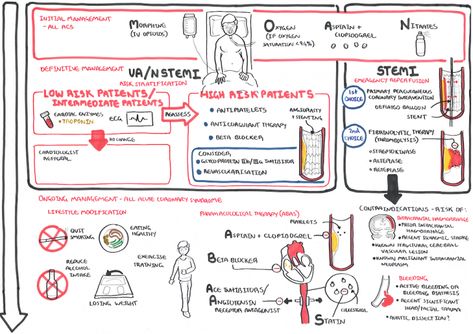 INITIAL MANAGEMENT
- ALL ACS
MORPHINE
(IV OPIOIDS)
OXYGEN
(IF OXYGEN
SATURATION <94%)
ASPIRIN +
CLOPIDOGREL
NITRATES
DEFINITIVE MANAGEMENT
UA/NSTEMI
RISK STRATIFICATION
LOW RISK PATIENTS/
INTERMEDIATE PATIENTS
CARDIAC ENZYMES
+ TROPONIN
ECG
REASSESS
NO CHANGE
CARDIOLOGIST
REFERRAL
HIGH RISK PATIENTS
• ANTIPLATELETS
• ANTICOAGULANT THERAPY
• BETA BLOCKER
CONSIDER
• GLYCOPROTEIN IIb/IIIa INHIBITOR
• REVASCULARISATION
ANGIOGRAPHY
+ STENTING
STEMI
EMERGENCY REPERFUSION
1ST
CHOICE
PRIMARY PERCUTANEOUS
CORONARY INTERVENTION
DEFLATED BALLOON
STENT
2ND
CHOICE
FIBRINOLYTIC THERAPY
(THROMBOLYSIS)
• STREPTOKINASE
• ALTEPLASE
• RETEPLASE
CONTRAINDICATIONS - RISK OF:
INTRACRANIAL HAEMORRHAGE
• PRIOR INTRACRANIAL
HAEMORRHAGE
• RECENT ISCHAEMIC STROKE
• KNOWN STRUCTURAL CEREBRAL
VASCULAR LESION
• KNOWN MALIGNANT INTRACRANIAL
NEOPLASM
BLEEDING
• ACTIVE BLEEDING OR
BLEEDING DIATHESIS
• RECENT SIGNIFICANT
HEAD/FACIAL TRAUMA
• AORTIC DISSECTION?
ONGOING MANAGEMENT - ALL ACUTE CORONARY SYNDROME
LIFESTYLE MODIFICATION
QUIT
SMOKING
EATING
HEALTHY
REDUCE
ALCOHOL
INTAKE
EXERCISE
TRAINING
LOSING WEIGHT
PHARMACOLOGICAL THERAPY (ABAS)
ASPIRIN + CLOPIDOGREL
PLATELETS
BETA BLOCKER
ACE INHIBITORS/
ANGIOTENSIN
RECEPTOR ANTAGONIST
STATIN
CHOLESTEROL